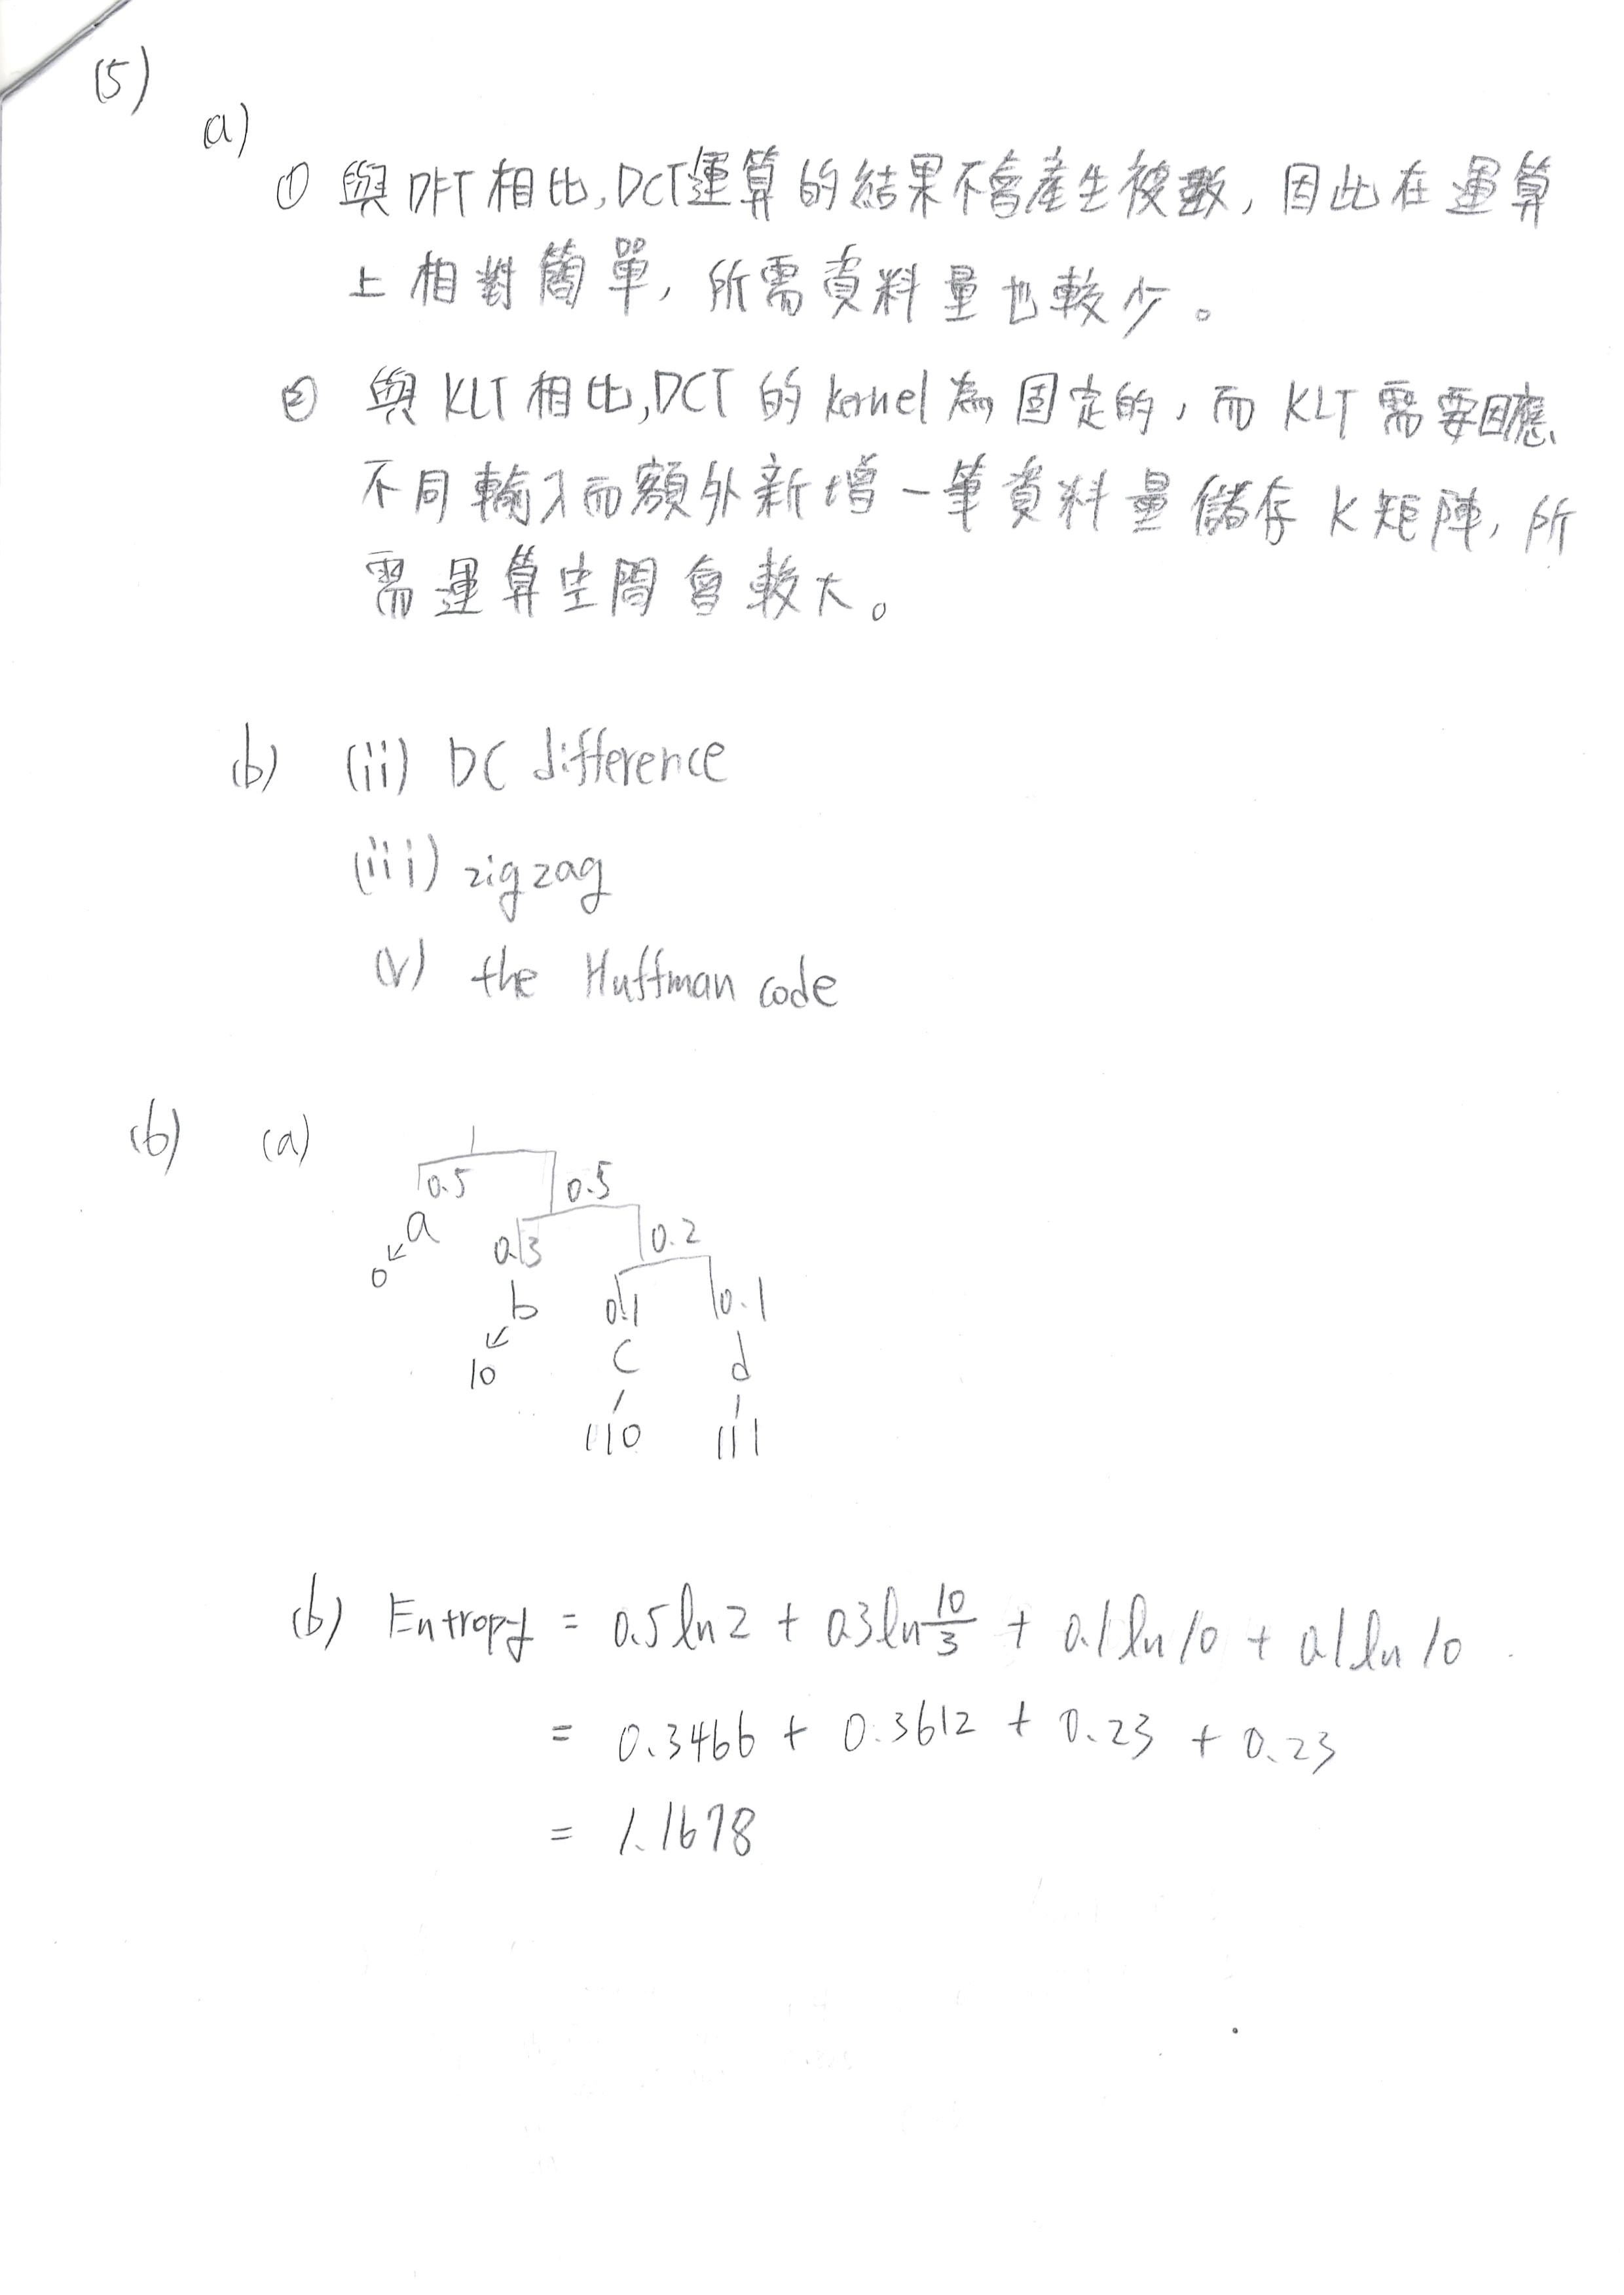 (5)
(a)
① 與DFT相比,DCT運算的結果不會產生複數, 因此在運算
上相對簡單, 所需資料量也較少。
② 與KLT相比,DCT的kernel為固定的, 而KLT需要因應
不同輸入而額外新增一筆資料量儲存K矩陣, 所
需運算空間會較大。
(b) (ii) DC difference
(iii) zigzag
(v) the Huffman code
(6) (a)
0.5 0.5
a 0.3 0.2
0 b 0.1 0.1
10 c d
110 111
(b) Entropy = 0.5 ln 2 + 0.3 ln 10/3 + 0.1 ln 10 + 0.1 ln 10
= 0.3466 + 0.3612 + 0.23 + 0.23
= 1.1678